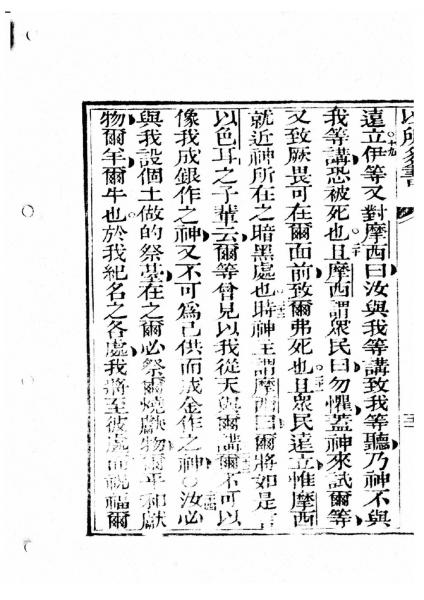 遠立伊等又對摩西曰汝與我等講致我等聽乃神不與
我等講恐被死也且摩西謂眾民曰勿懼蓋神來試爾等
又致厥畏可在爾面前致爾弗死也且眾民遠立惟摩西
就近神所在之暗黑處也時神主謂摩西曰爾將如是言
以色耳之子輩云爾等曾見以我從天與爾講爾不可以
像我成銀作之神又不可為己供而成金作之神○汝必
與我設個土做的祭臺在之爾必祭爾燒獻物爾平和獻
物爾羊爾牛也於我紀名之各處我將至彼處而祝福爾